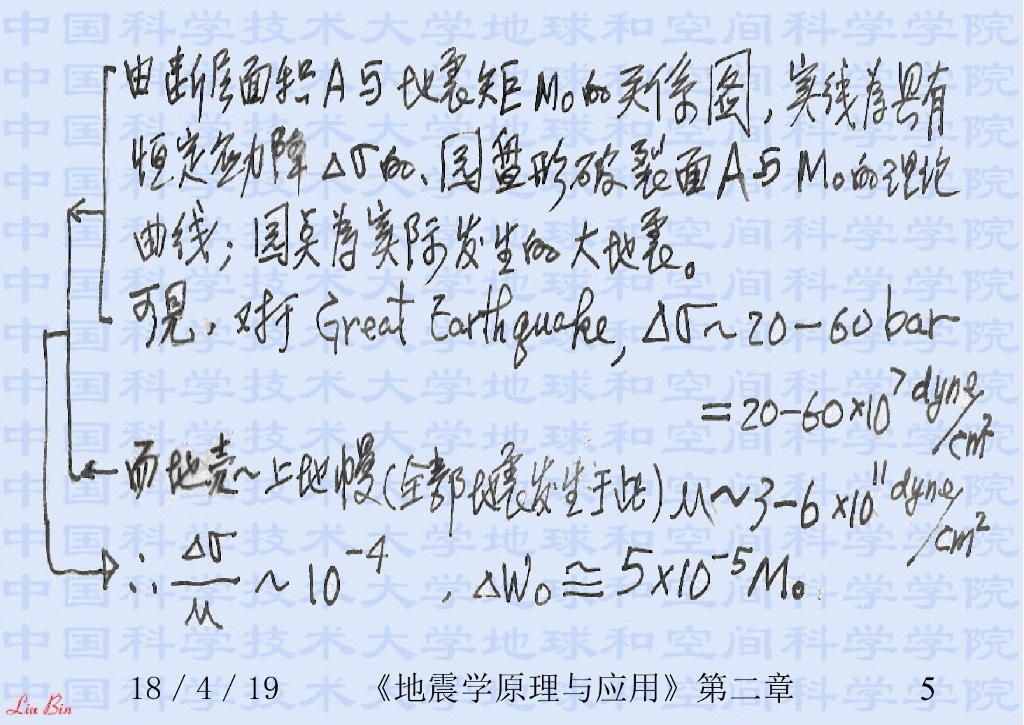 由断层面积A与地震矩M₀的关系图，实线为具有
恒定应力降Δσ的、圆盘形破裂面A与M₀的理论
曲线；圆点为实际发生的大地震。
可见，对于Great Earthquake, Δσ~20-60 bar
=20-60×10⁷ dyne/cm²
而地壳~上地幔(全部地震发生于此) μ~3-6×10¹¹ dyne/cm²
∴ Δσ/μ ~ 10⁻⁴ , ΔW₀ ≅ 5×10⁻⁵M₀.
18/4/19 《地震学原理与应用》第二章 5
Liu Bin
中国科学技术大学地球和空间科学学院